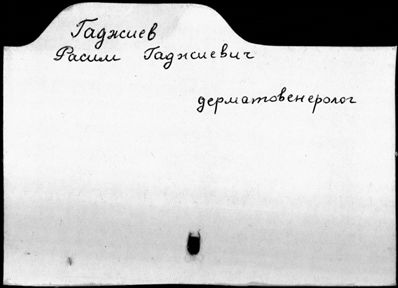 Гаджиев
Расим Гаджиевич
дерматовенеролог